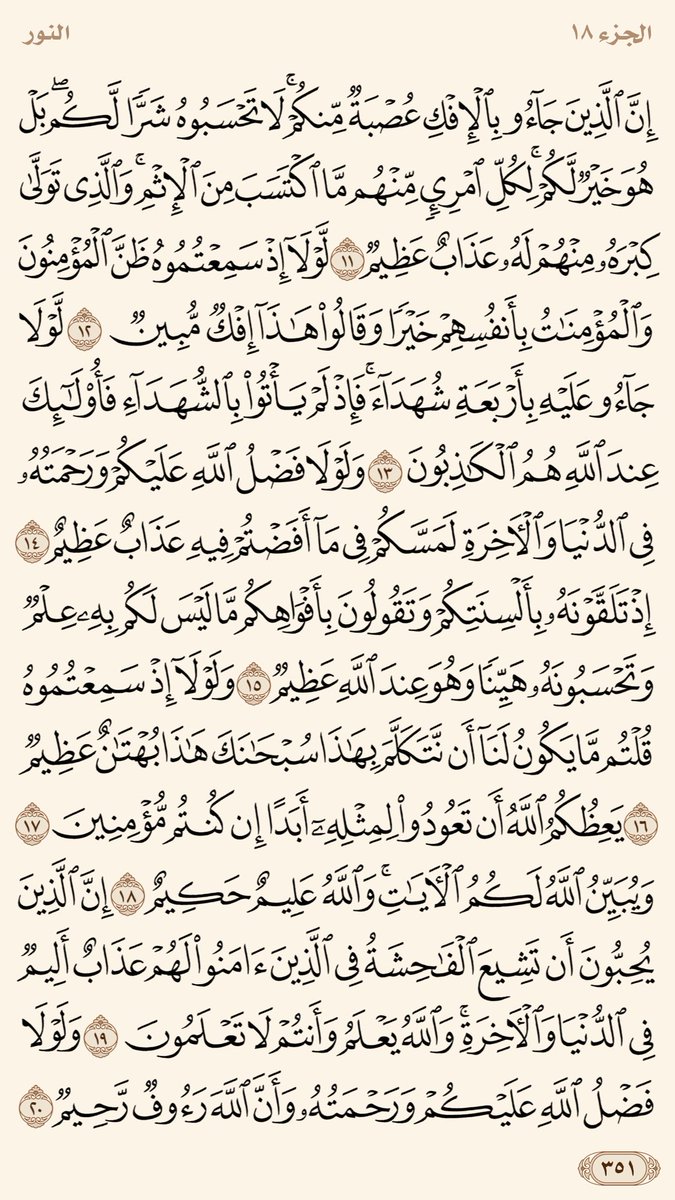 الجزء ١٨ النور
إِنَّ ٱلَّذِينَ جَآءُو بِٱلْإِفْكِ عُصْبَةٌ مِّنكُمْ ۚ لَا تَحْسَبُوهُ شَرًّا لَّكُم ۖ بَلْ
هُوَ خَيْرٌ لَّكُمْ ۚ لِكُلِّ ٱمْرِئٍ مِّنْهُم مَّا ٱكْتَسَبَ مِنَ ٱلْإِثْمِ ۚ وَٱلَّذِى تَوَلَّىٰ
كِبْرَهُۥ مِنْهُمْ لَهُۥ عَذَابٌ عَظِيمٌ ١١ لَّوْلَآ إِذْ سَمِعْتُمُوهُ ظَنَّ ٱلْمُؤْمِنُونَ
وَٱلْمُؤْمِنَٰتُ بِأَنفُسِهِمْ خَيْرًا وَقَالُوا۟ هَٰذَآ إِفْكٌ مُّبِينٌ ١٢ لَّوْلَا
جَآءُو عَلَيْهِ بِأَرْبَعَةِ شُهَدَآءَ ۚ فَإِذْ لَمْ يَأْتُوا۟ بِٱلشُّهَدَآءِ فَأُو۟لَٰٓئِكَ
عِندَ ٱللَّهِ هُمُ ٱلْكَٰذِبُونَ ١٣ وَلَوْلَا فَضْلُ ٱللَّهِ عَلَيْكُمْ وَرَحْمَتُهُۥ
فِى ٱلدُّنْيَا وَٱلْءَاخِرَةِ لَمَسَّكُمْ فِى مَآ أَفَضْتُمْ فِيهِ عَذَابٌ عَظِيمٌ ١٤
إِذْ تَلَقَّوْنَهُۥ بِأَلْسِنَتِكُمْ وَتَقُولُونَ بِأَفْوَاهِكُم مَّا لَيْسَ لَكُم بِهِۦ عِلْمٌ
وَتَحْسَبُونَهُۥ هَيِّنًا وَهُوَ عِندَ ٱللَّهِ عَظِيمٌ ١٥ وَلَوْلَآ إِذْ سَمِعْتُمُوهُ
قُلْتُم مَّا يَكُونُ لَنَآ أَن نَّتَكَلَّمَ بِهَٰذَا سُبْحَٰنَكَ هَٰذَا بُهْتَٰنٌ عَظِيمٌ
١٦ يَعِظُكُمُ ٱللَّهُ أَن تَعُودُوا۟ لِمِثْلِهِۦٓ أَبَدًا إِن كُنتُم مُّؤْمِنِينَ ١٧
وَيُبَيِّنُ ٱللَّهُ لَكُمُ ٱلْءَايَٰتِ ۚ وَٱللَّهُ عَلِيمٌ حَكِيمٌ ١٨ إِنَّ ٱلَّذِينَ
يُحِبُّونَ أَن تَشِيعَ ٱلْفَٰحِشَةُ فِى ٱلَّذِينَ ءَامَنُوا۟ لَهُمْ عَذَابٌ أَلِيمٌ
فِى ٱلدُّنْيَا وَٱلْءَاخِرَةِ ۚ وَٱللَّهُ يَعْلَمُ وَأَنتُمْ لَا تَعْلَمُونَ ١٩ وَلَوْلَا
فَضْلُ ٱللَّهِ عَلَيْكُمْ وَرَحْمَتُهُۥ وَأَنَّ ٱللَّهَ رَءُوفٌ رَّحِيمٌ ٢٠
٣٥١